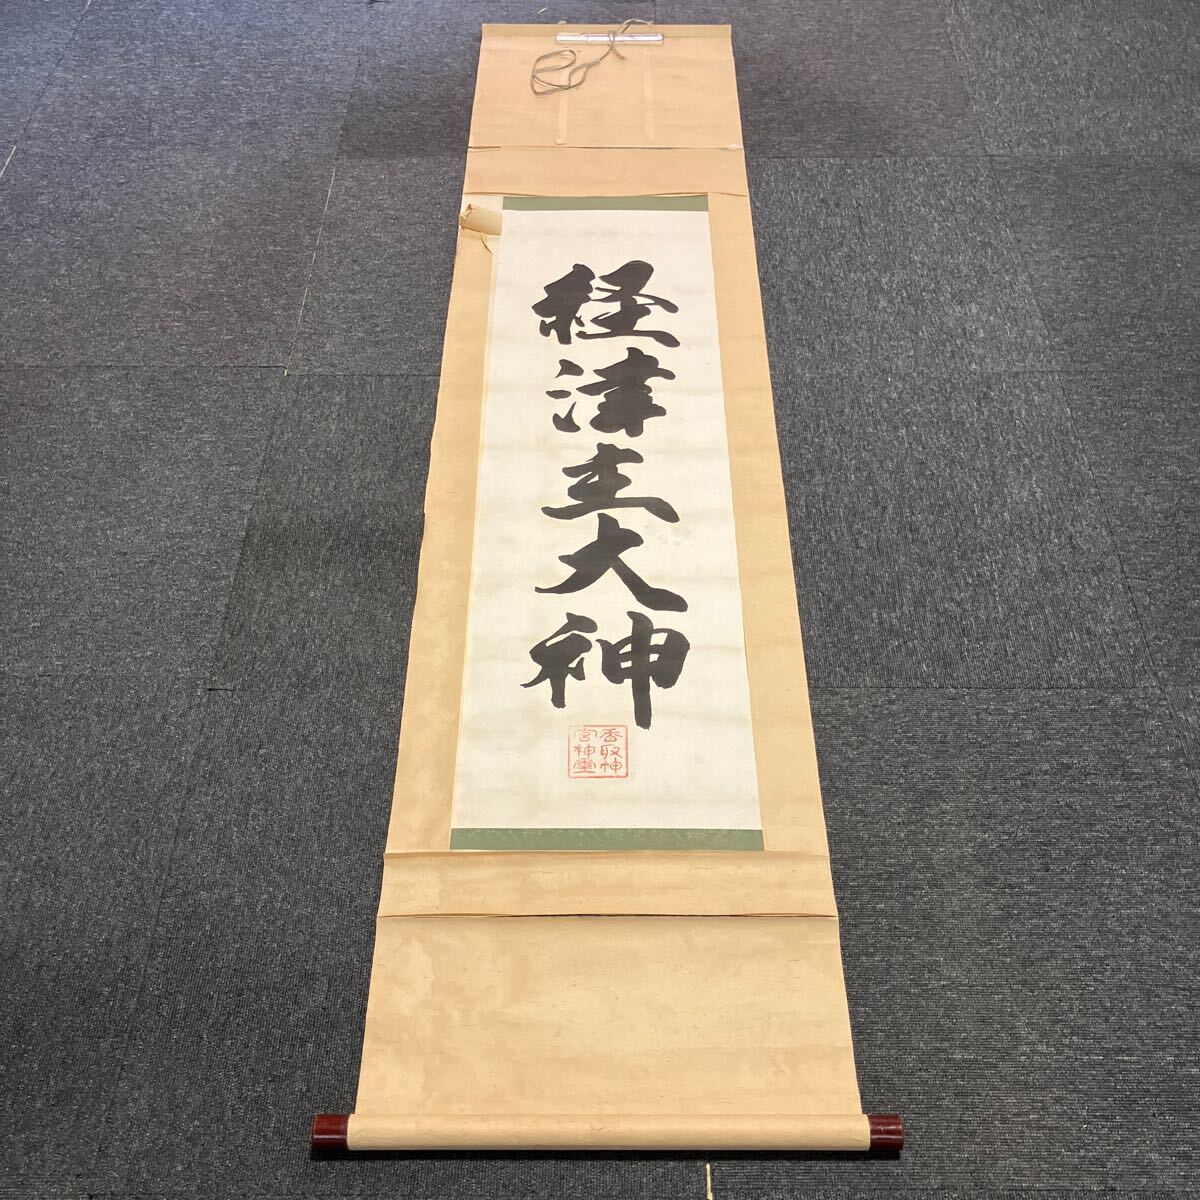 経津主大神
香取神
宮神璽